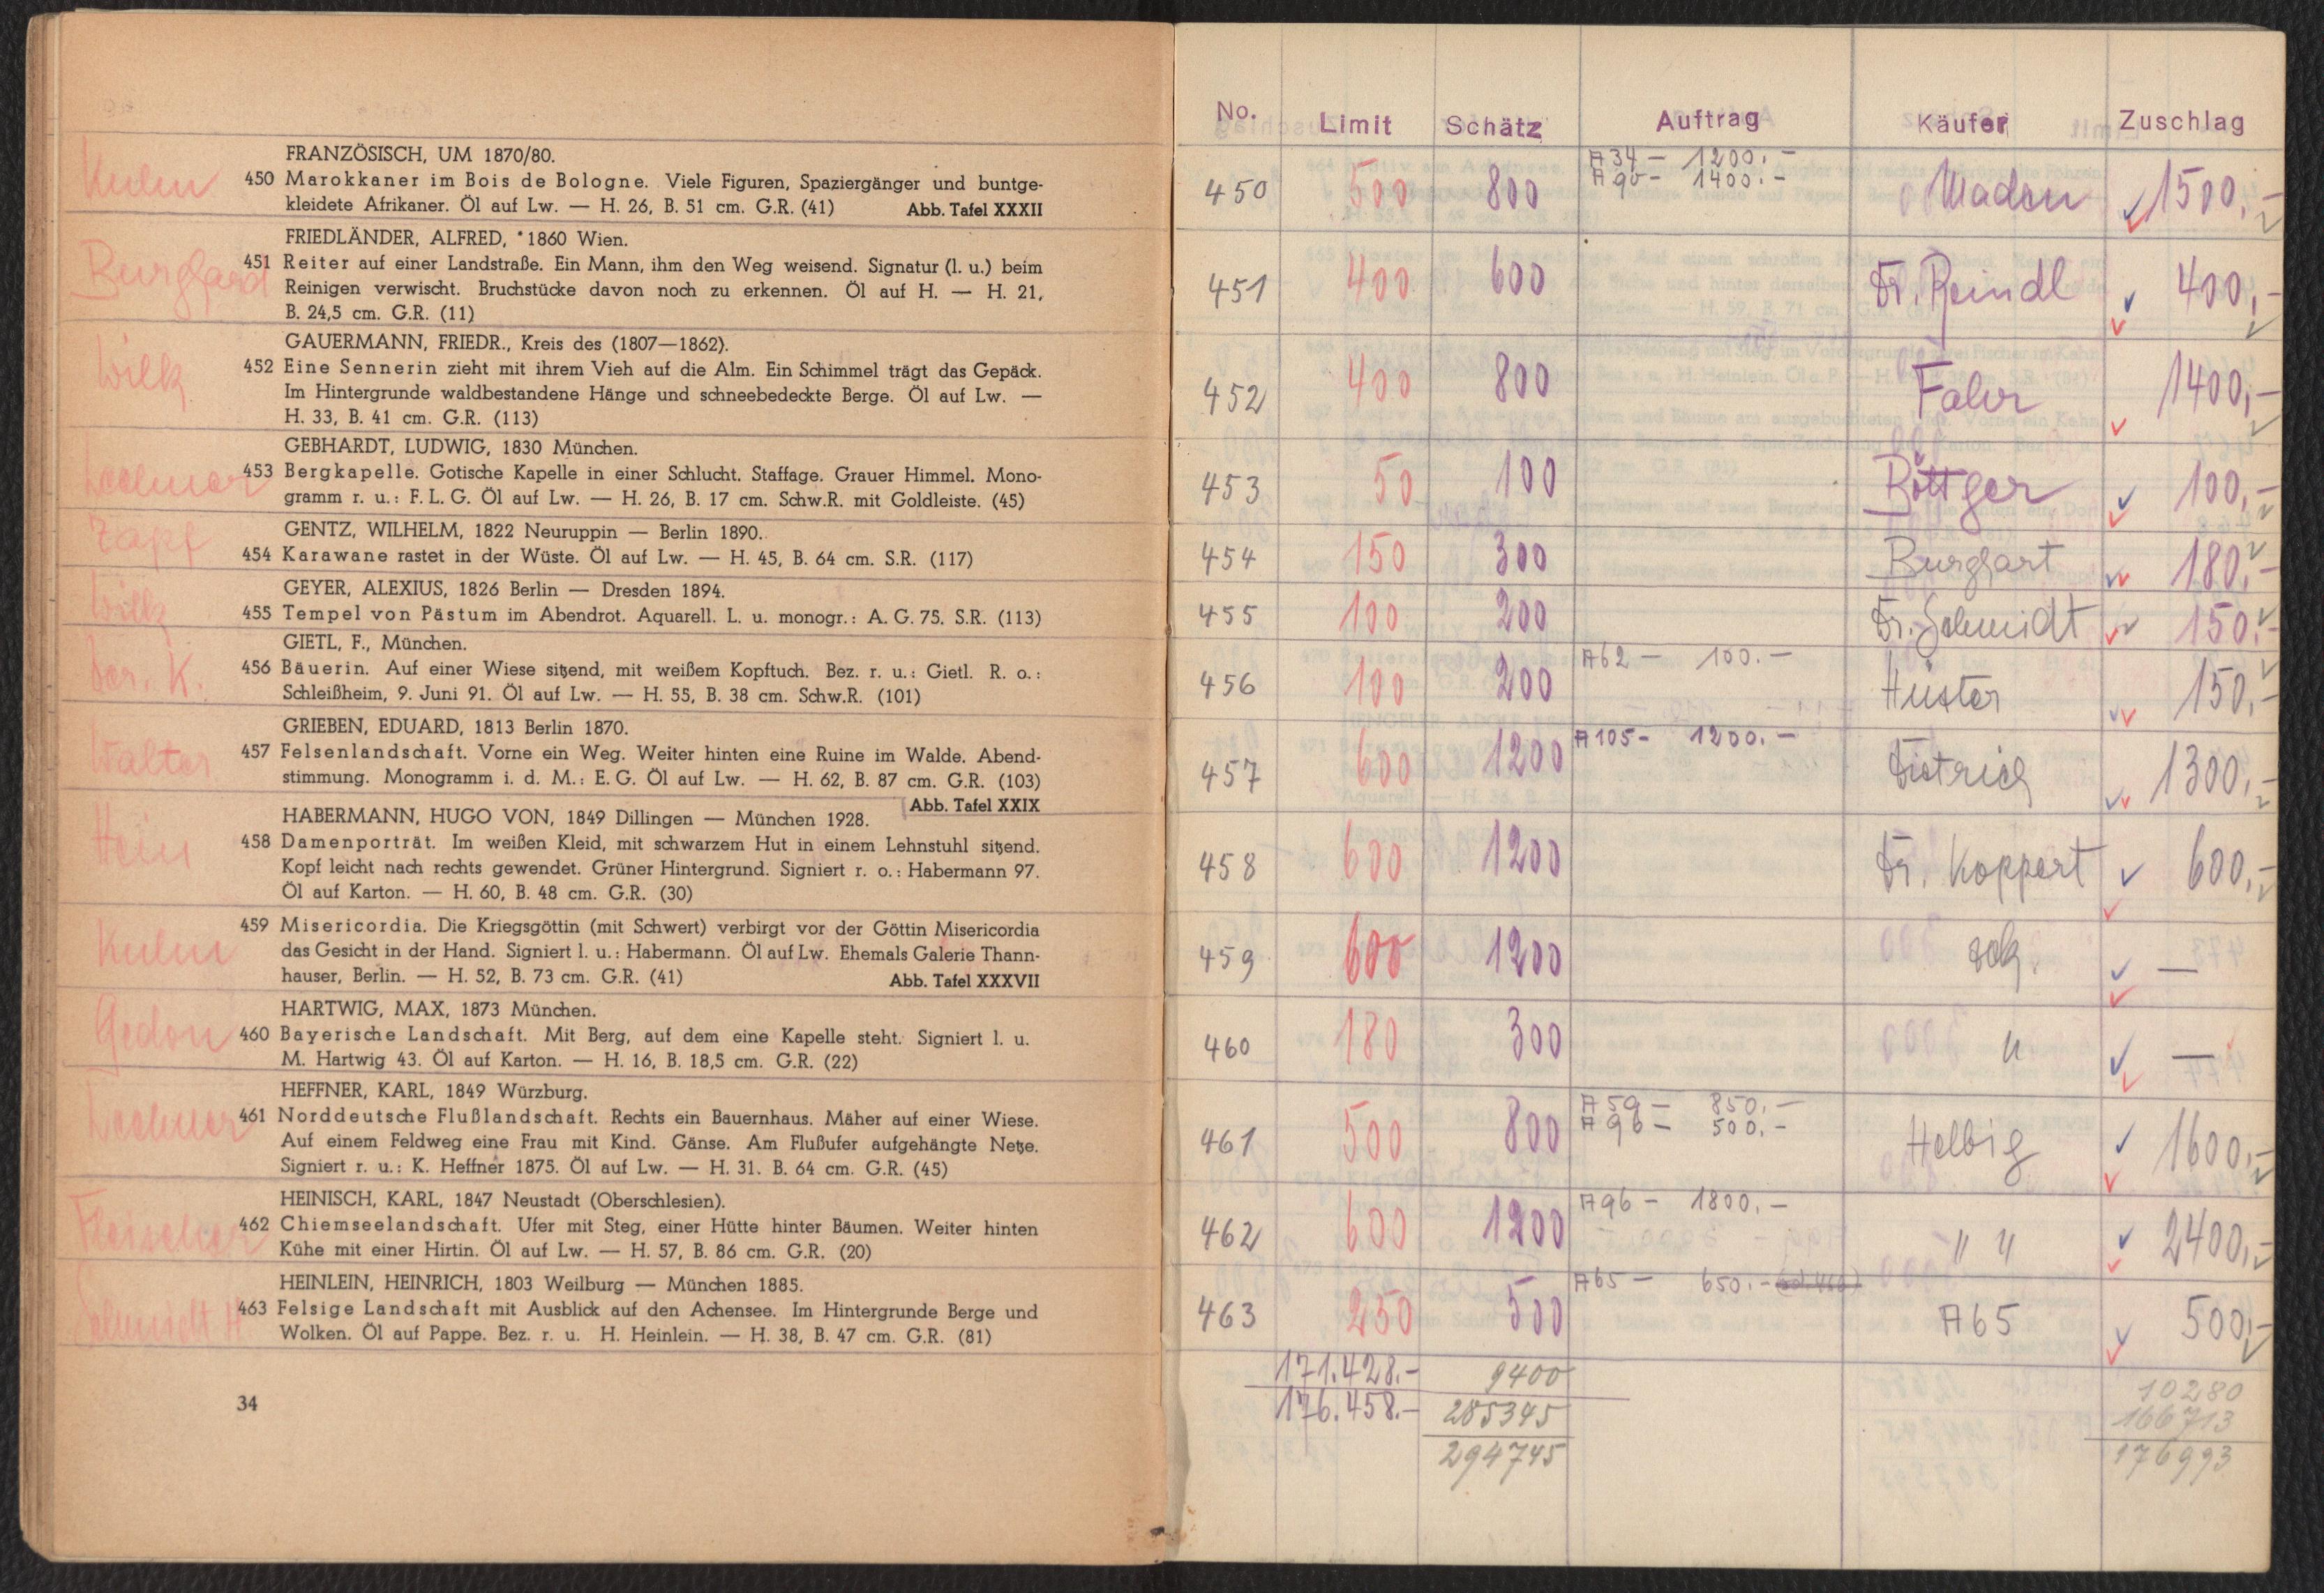 FRANZÖSISCH, UM 1870/80.
450 Marokkaner im Bois de Bologne. Viele Figuren, Spaziergänger und buntge-
kleidete Afrikaner. Öl auf Lw. — H. 26, B. 51 cm. G.R. (41) Abb. Tafel XXXII
Burghard
FRIEDLÄNDER, ALFRED, *1860 Wien.
451 Reiter auf einer Landstraße. Ein Mann, ihm den Weg weisend. Signatur (l. u.) beim
Reinigen verwischt. Bruchstücke davon noch zu erkennen. Öl auf H. — H. 21,
B. 24,5 cm. G.R. (11)
Wilk
GAUERMANN, FRIEDR., Kreis des (1807—1862).
452 Eine Sennerin zieht mit ihrem Vieh auf die Alm. Ein Schimmel trägt das Gepäck.
Im Hintergrunde waldbestandene Hänge und schneebedeckte Berge. Öl auf Lw. —
H. 33, B. 41 cm. G.R. (113)
GEBHARDT, LUDWIG, 1830 München.
453 Bergkapelle. Gotische Kapelle in einer Schlucht. Staffage. Grauer Himmel. Mono-
gramm r. u.: F. L. G. Öl auf Lw. — H. 26, B. 17 cm. Schw.R. mit Goldleiste. (45)
Zapf
GENTZ, WILHELM, 1822 Neuruppin — Berlin 1890.
454 Karawane rastet in der Wüste. Öl auf Lw. — H. 45, B. 64 cm. S.R. (117)
Wilk
GEYER, ALEXIUS, 1826 Berlin — Dresden 1894.
455 Tempel von Pästum im Abendrot. Aquarell. L. u. monogr.: A. G. 75. S.R. (113)
GIETL, F., München.
456 Bäuerin. Auf einer Wiese sitzend, mit weißem Kopftuch. Bez. r. u.: Gietl. R. o.:
Schleißheim, 9. Juni 91. Öl auf Lw. — H. 55, B. 38 cm. Schw.R. (101)
Walter
GRIEBEN, EDUARD, 1813 Berlin 1870.
457 Felsenlandschaft. Vorne ein Weg. Weiter hinten eine Ruine im Walde. Abend-
stimmung. Monogramm i. d. M.: E. G. Öl auf Lw. — H. 62, B. 87 cm. G.R. (103)
Abb. Tafel XXIX
Hein
HABERMANN, HUGO VON, 1849 Dillingen — München 1928.
458 Damenporträt. Im weißen Kleid, mit schwarzem Hut in einem Lehnstuhl sitzend.
Kopf leicht nach rechts gewendet. Grüner Hintergrund. Signiert r. o.: Habermann 97.
Öl auf Karton. — H. 60, B. 48 cm. G.R. (30)
459 Misericordia. Die Kriegsgöttin (mit Schwert) verbirgt vor der Göttin Misericordia
das Gesicht in der Hand. Signiert l. u.: Habermann. Öl auf Lw. Ehemals Galerie Thann-
hauser, Berlin. — H. 52, B. 73 cm. G.R. (41) Abb. Tafel XXXVII
Gedon
HARTWIG, MAX, 1873 München.
460 Bayerische Landschaft. Mit Berg, auf dem eine Kapelle steht. Signiert l. u.
M. Hartwig 43. Öl auf Karton. — H. 16, B. 18,5 cm. G.R. (22)
HEFFNER, KARL, 1849 Würzburg.
461 Norddeutsche Flußlandschaft. Rechts ein Bauernhaus. Mäher auf einer Wiese.
Auf einem Feldweg eine Frau mit Kind. Gänse. Am Flußufer aufgehängte Netze.
Signiert r. u.: K. Heffner 1875. Öl auf Lw. — H. 31. B. 64 cm. G.R. (45)
Fleischer
HEINISCH, KARL, 1847 Neustadt (Oberschlesien).
462 Chiemseelandschaft. Ufer mit Steg, einer Hütte hinter Bäumen. Weiter hinten
Kühe mit einer Hirtin. Öl auf Lw. — H. 57, B. 86 cm. G.R. (20)
Schmidt H
HEINLEIN, HEINRICH, 1803 Weilburg — München 1885.
463 Felsige Landschaft mit Ausblick auf den Achensee. Im Hintergrunde Berge und
Wolken. Öl auf Pappe. Bez. r. u. H. Heinlein. — H. 38, B. 47 cm. G.R. (81)
34
No. Limit Schätz Auftrag Käufer Zuschlag
A34 — 1200.—
A90 — 1400.—
450 500 800 Madsen 1500,—
451 400 600 Dr. Reindl 400,—
452 400 800 Fahr 1400,—
453 50 100 Böttger 100,—
454 150 300 Burghart 180,—
455 100 200 Dr. Schmidt 150,—
A62 — 100.—
456 100 200 Hüster 150,—
A105 — 1200.—
457 600 1200 Dietrich 1300,—
458 600 1200 Dr. Koppert 600,—
459 600 1200 zck. —
460 180 300 " —
A59 — 850.—
A96 — 500.—
461 500 800 Helbig 1600,—
A96 — 1800.—
462 600 1200 " " 2400,—
A65 — 650.—
463 250 500 A65 500,—
171.428.— 9400 10280
176.458.— 285345 166713
294745 176993